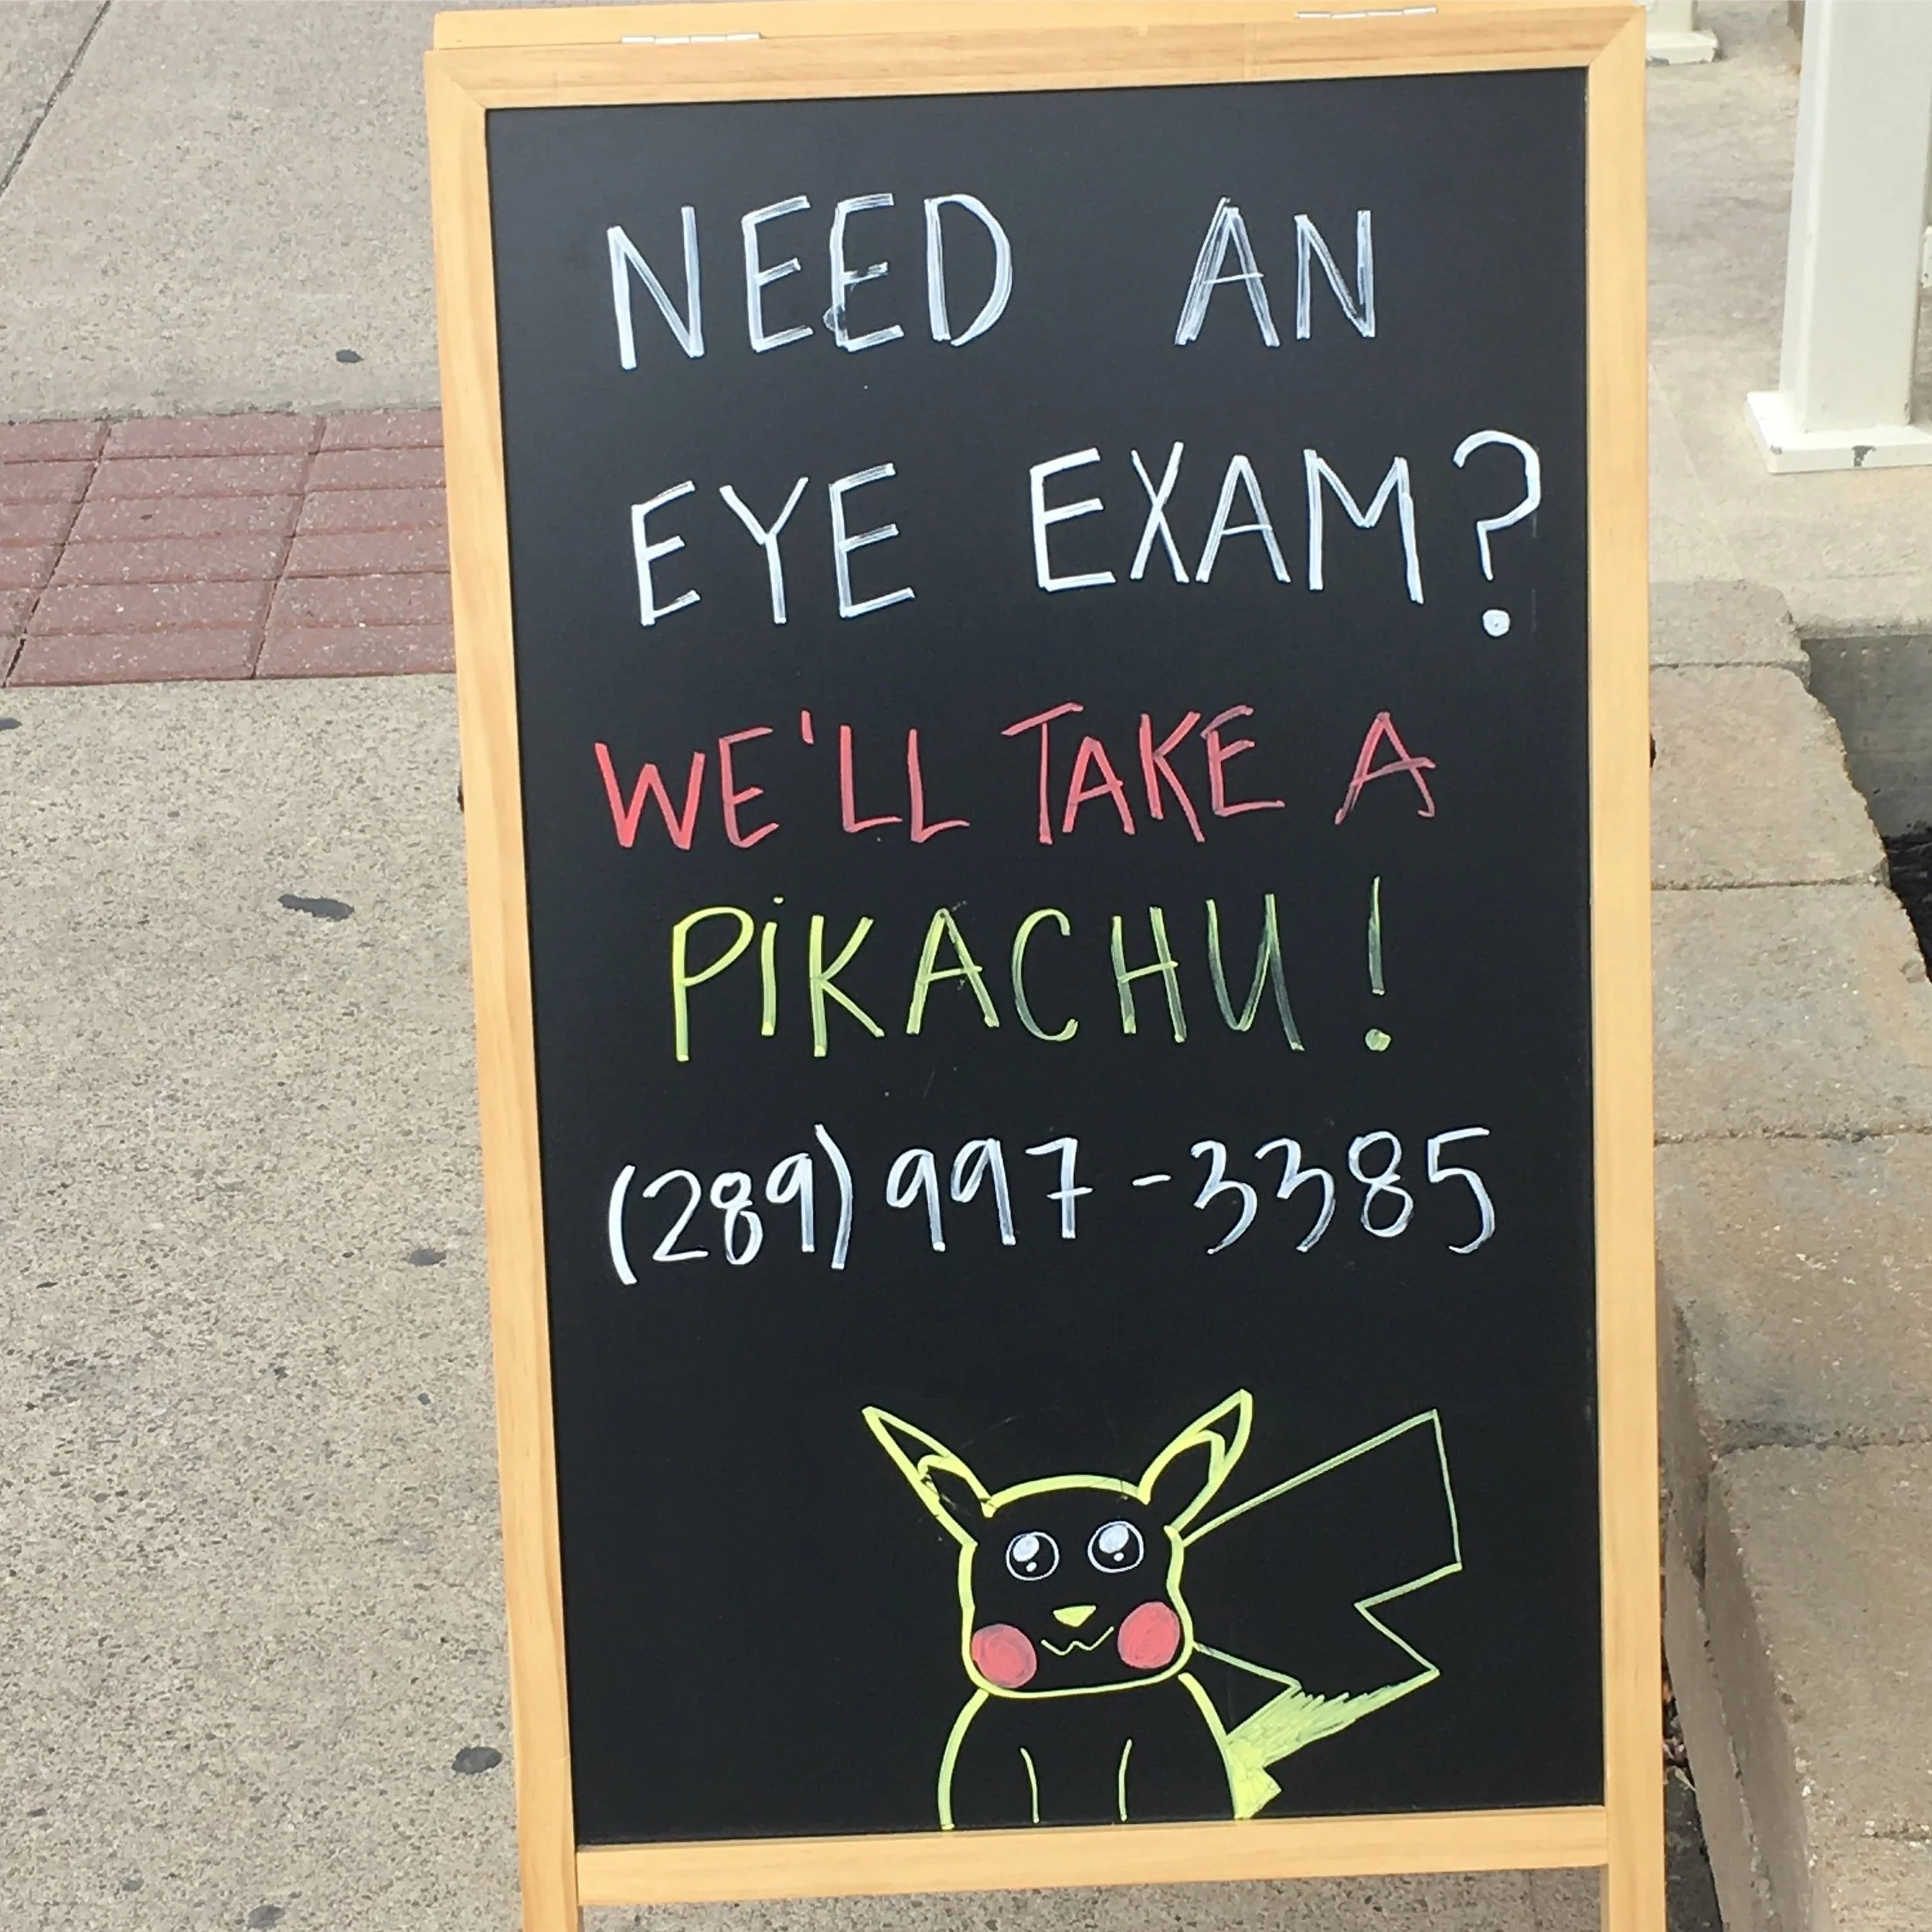 NEED AN
EYE EXAM?
WE'LL TAKE A
PiKACHU!
(289) 997-3385